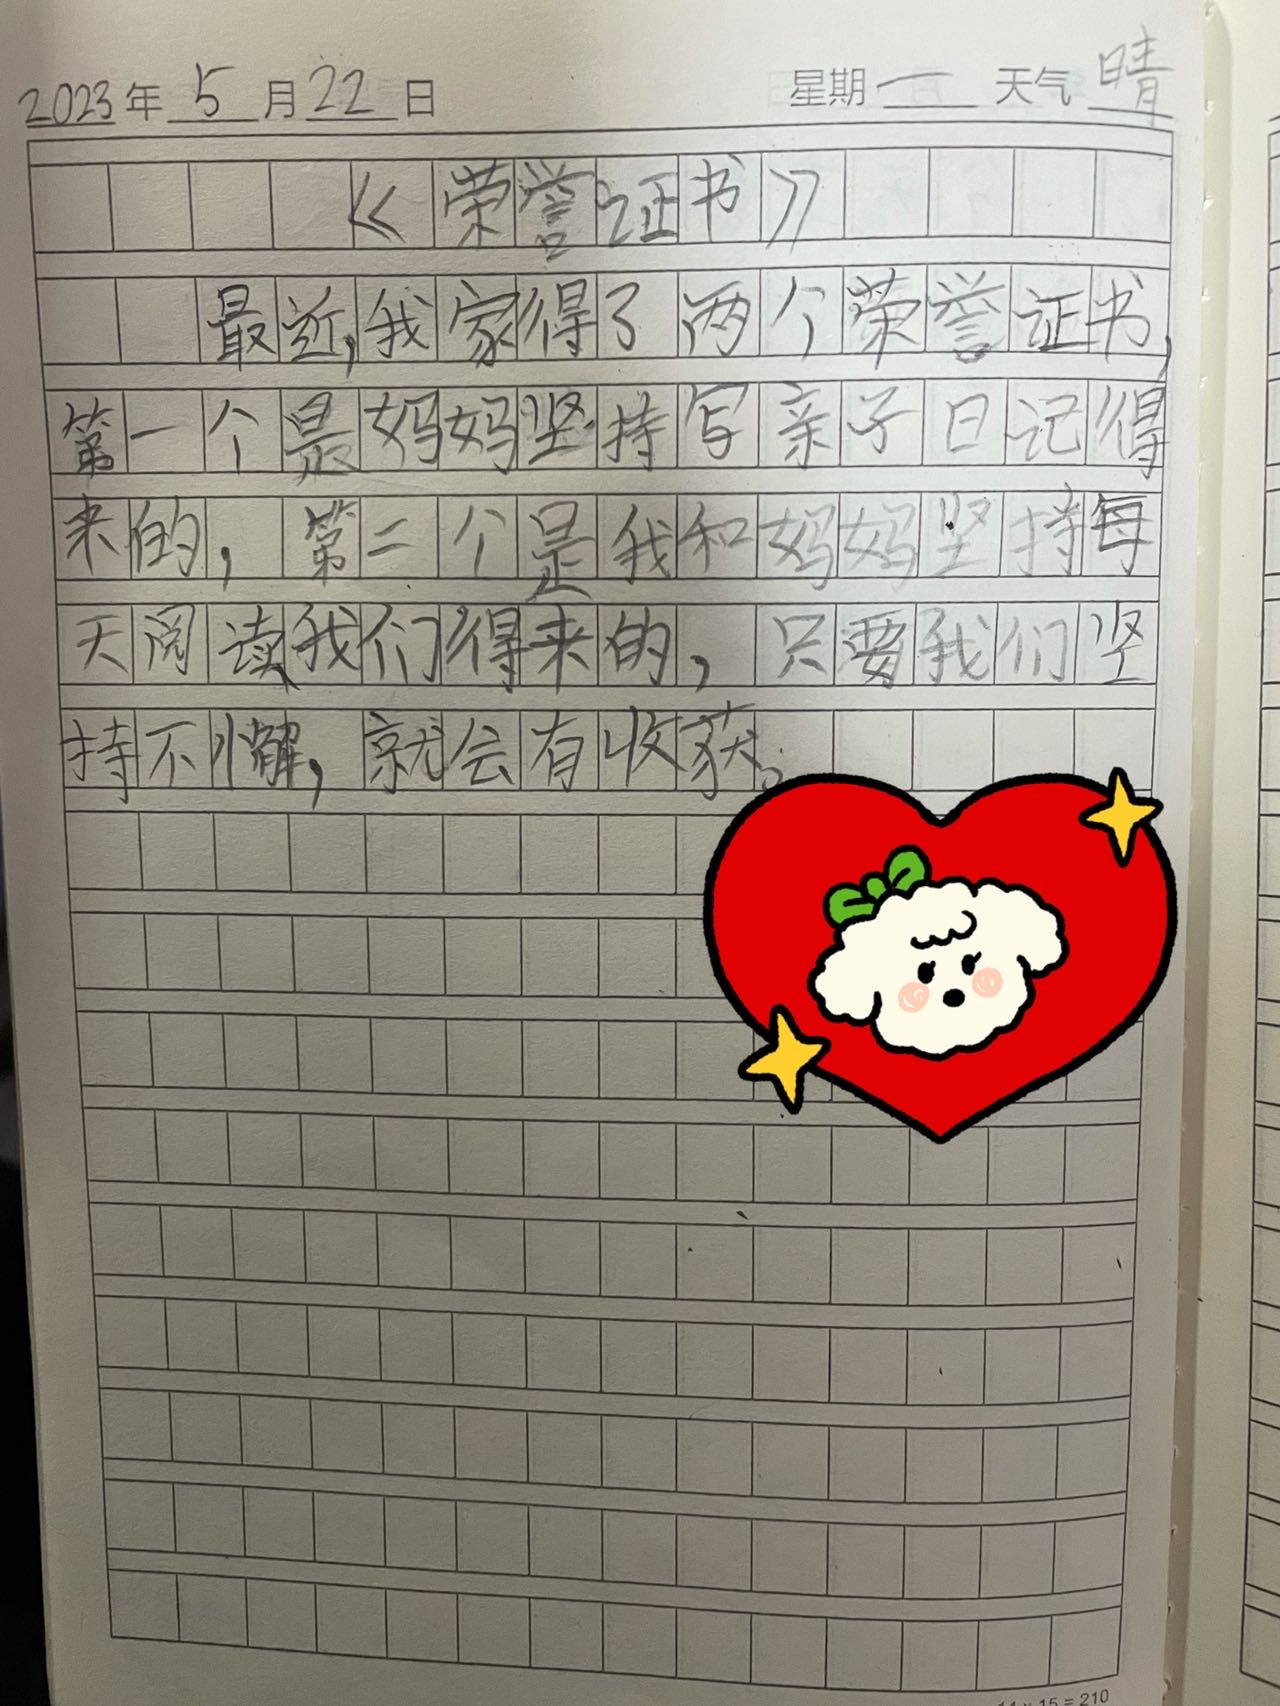 2023年5月22日 星期一 天气晴
《荣誉证书》
最近,我家得了两个荣誉证书,
第一个是妈妈坚持写亲子日记得
来的,第二个是我和妈妈坚持每
天阅读我们得来的,只要我们坚
持不懈,就会有收获。
15=210